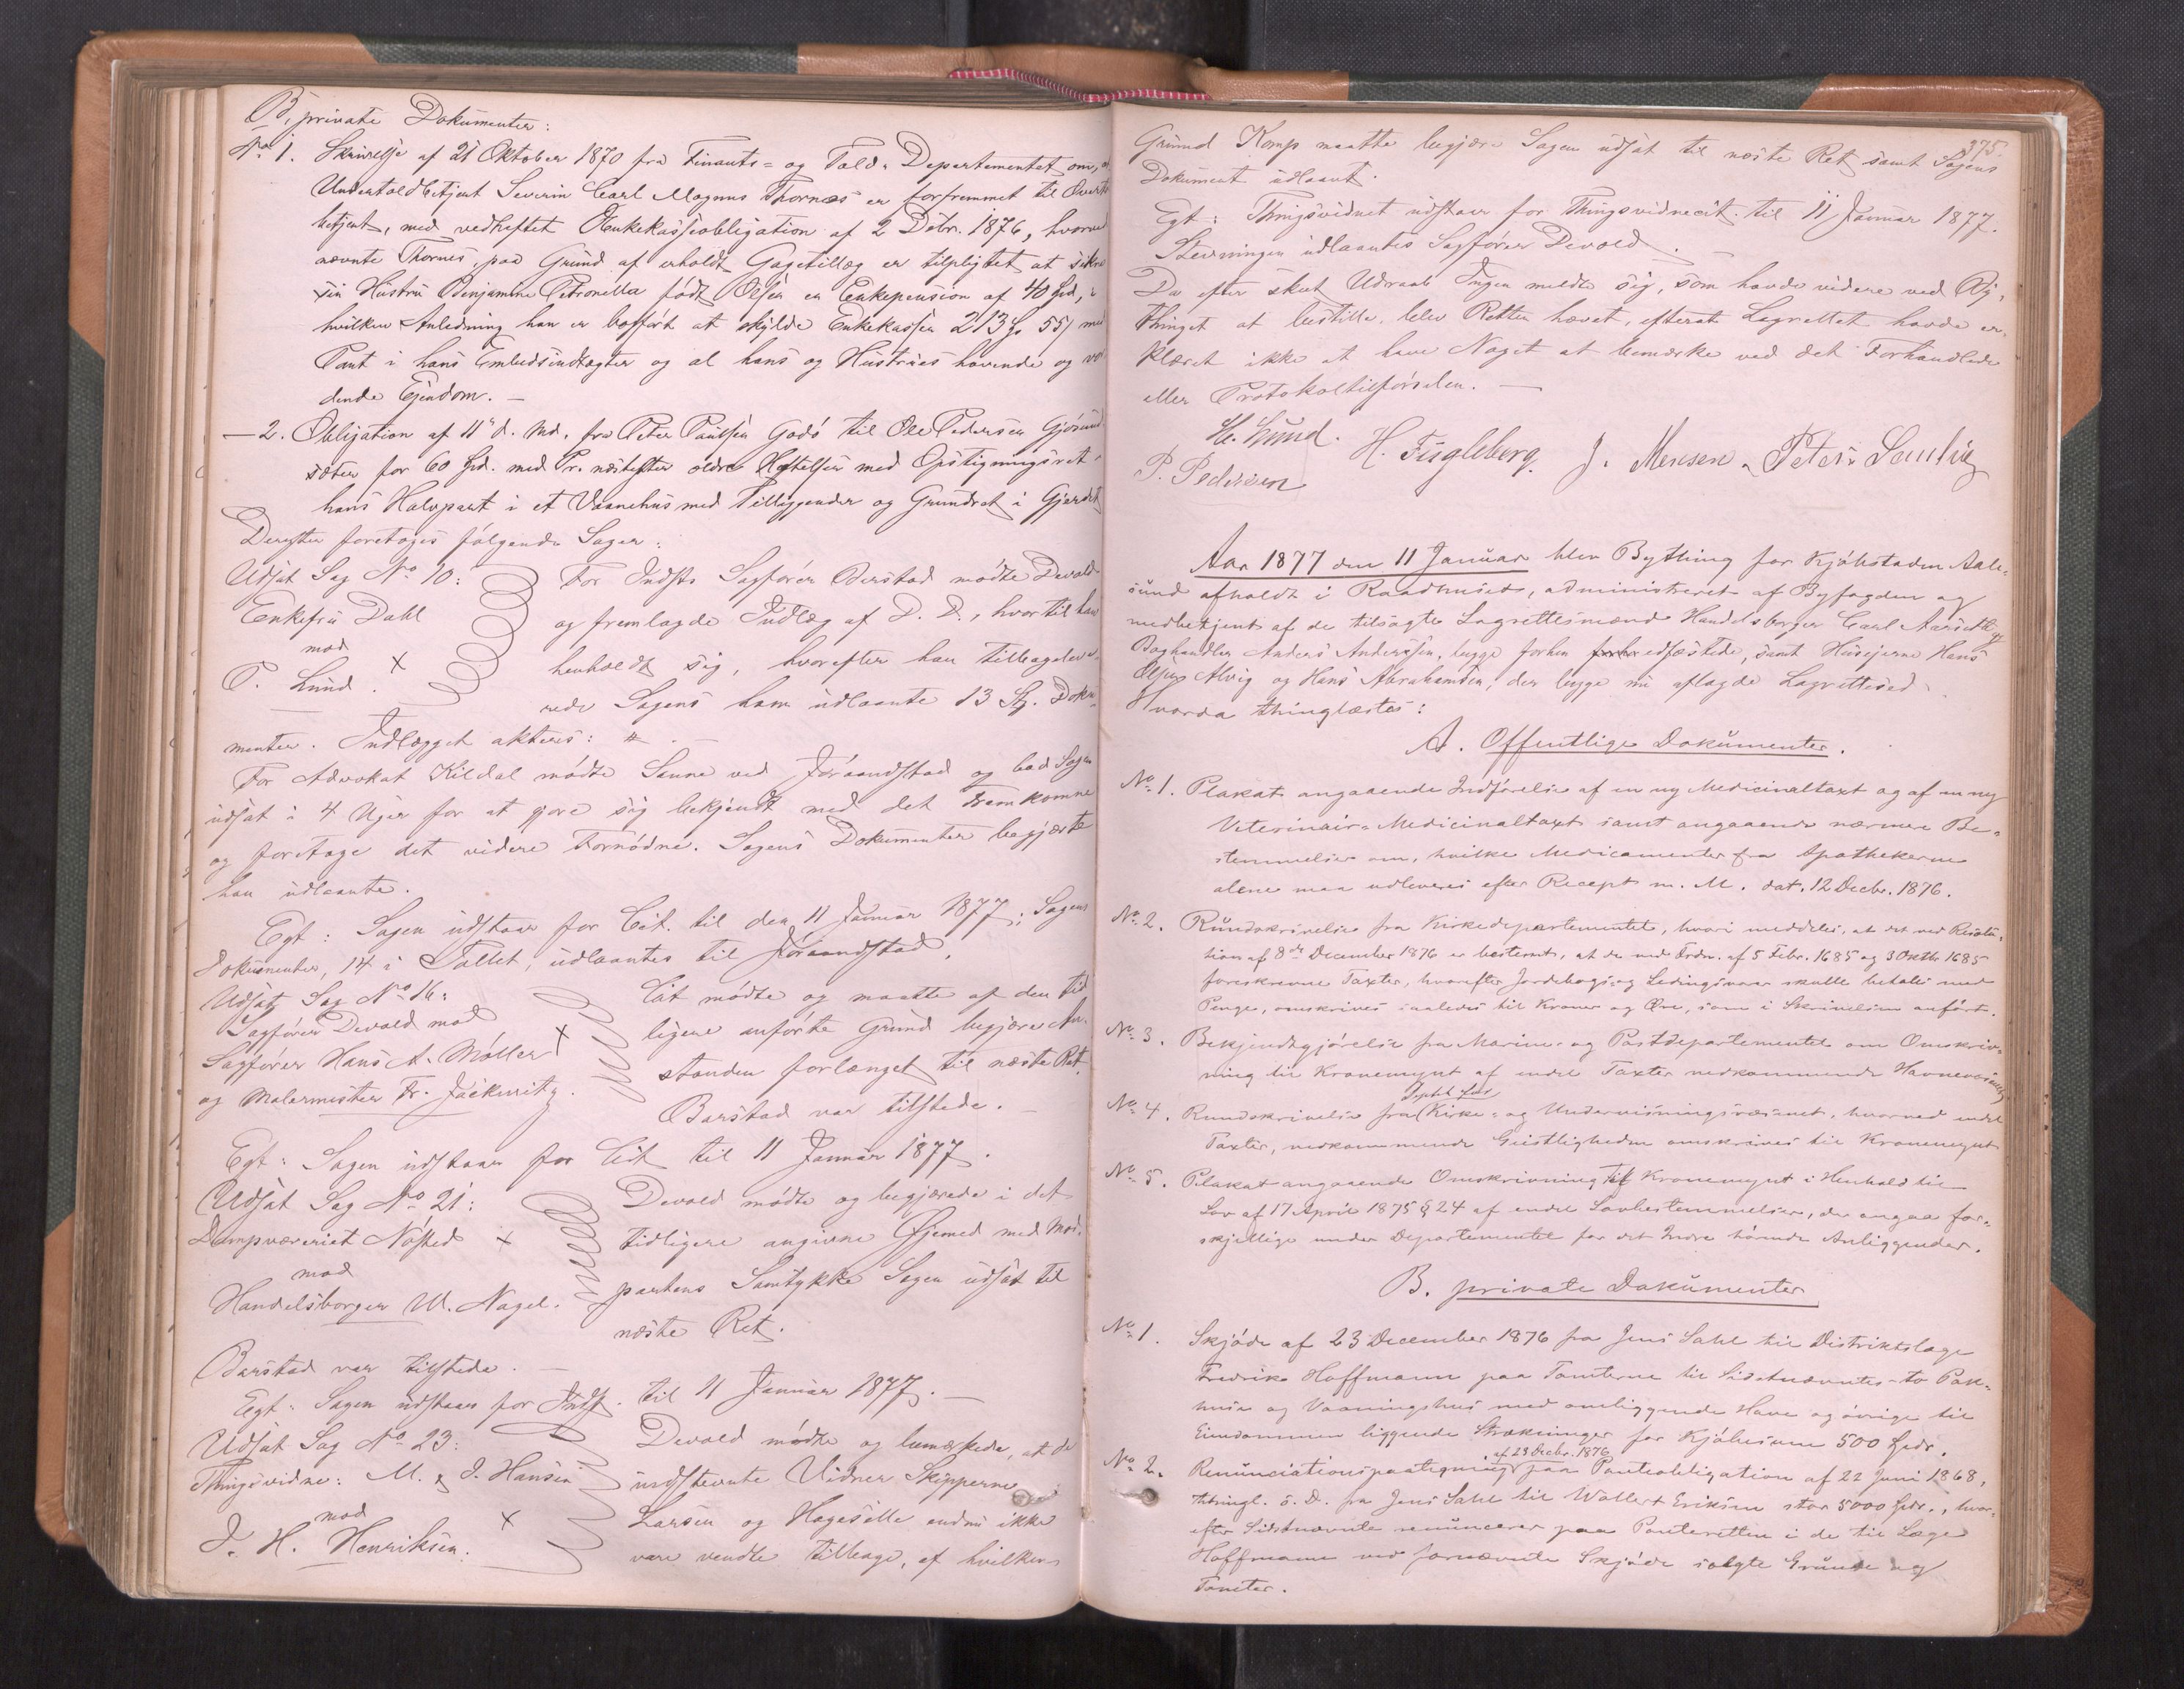 B, private Dokumenter:
No 1. Skrivelse af 21 Oktober 1870 fra Finants- og Told-Departementet om, at
Undertoldbetjent Severin Carl Magnus Thornæs er forfremmet til Overtold
betjent, med vedheftet Enkekasseobligation af 2 Debr. 1876, hvorved
nævnte Thornes, paa Grund af erholdt Gagetillæg er tilpligtet at sikre
sin Hustru Benjamine Petronella født Olsen en Enkepension af 40 Spd, i
hvilken Anledning han er bleven skyldig Enkekassen 213 55 med
Pant i hans Embedsindtægter og al hans og Hustrues havende og vor
dende Ejendom. —
— 2. Obligation af 11te d. Md. fra Peter Paulsen Godø til Ole Pedersen Gjøsund
sæter for 60 Spd. med Pr. næstefter ældre Heftelser med Opstigningsret i
hans Halvpart i et Vaanehus med Tilliggender og Grundret i Gjerdet
Derefter foretoges følgende Sager:
Udsat Sag No 10:
Enkefru Dahl
mod
P. Lund.
For Indst. Sagfører Berstad mødte Devold
og fremlagde Indlæg af D. D., hvortil han
henholdt sig, hvorefter han tilbageleve
rede Sagens ham udlaante 13 St. Doku
menter. Indlægget akteres: # . —
For Advokat Kildal mødte Sanne ved Jøraandstad og bad Sagen
udsat i 4 Uger for at gjøre sig bekjendt med det Fremkomne
og foretage det videre Fornødne. Sagens Dokumenter begjærte
han udlaante.
Egt: Sagen udstaar for Cit. til den 11 Januar 1877; Sagens
Dokumenter, 14 i Tallet, udlaantes til Jøraandstad.
Udsat Sag No 16:
Sagfører Devold mod
Sagfører Hans A. Møller
og Malermester Fr. Jackwitz.
Cit mødte og maatte af den tid
ligere anførte Grund begjære An-
standen forlænget til næste Ret.
Barstad var tilstede. —
Egt: Sagen udstaar for Cit til 11 Januar 1877.
Udsat Sag No 21:
Dampvæveriet Nøsted
mod
Handelsborger W. Nagel.
Devold mødte og begjærede i det
tidligere angivne Øjemed med Mod-
partens Samtykke Sagen udsat til
næste Ret.
Barstad var tilstede. —
Egt: Sagen udstaar for Indst. til 11 Januar 1877. —
Udsat Sag No 23:
Thingsvidne: M. & J. Hansen
mod
J. H. Henriksen.
Devold mødte og bemærkede, at de
indstevnte Vidner Skipperne
Larsen og Hagesille endnu ikke
vare vendte tilbage, af hvilken
375.
Grund Komp maatte begjære Sagen udsat til næste Ret samt Sagens
Dokument udlaant.
Egt: Thingsvidnet udstaar for Thingsvidnecit. til 11 Januar 1877.
Stevningen udlaantes Sagfører Devold.
Da efter skeet Udraab Ingen meldte sig, som havde videre ved By-
thinget at bestille, blev Retten hævet, efterat Lagrettet havde er-
klæret ikke at have Noget at bemærke ved det Forhandlede
eller Protokoltilførselen. —
H. Fugleberg. J. Mensen
P. Pedersen
Aar 1877 den 11 Januar blev Bything for Kjøbstaden Aale-
sund afholdt i Raadhuset, administreret af Byfogden og
medbetjent af de tilsagte Lagrettesmænd Handelsborger Carl Aarseth og
Boghandler Anders Anderssen, begge forhen edfæstede, samt Husejerne Hans
Olsen Alvig og Hans Abrahamsen, der begge nu aflagde Lagrettesed.
Hvorda thinglæstes:
A. Offentlige Dokumenter.
No 1. Plakat angaaende Indførelse af en ny Medicinaltaxt og af en ny
Veterinair-Medicinaltaxt samt angaaende nærmere Be-
stemmelser om, hvilke Medicamenter fra Apothekerne
alene maa udleveres efter Recept m. M. dat. 12 Decbr. 1876.
No 2. Rundskrivelse fra Kirkedepartementet, hvori meddeles, at det ved Resolu-
tion af 8de December 1876 er bestemt, at de ved Frdn. af 5 Febr. 1685 og 3 Oktb 1685
foreskrevne Taxter, hvorefter Jordebogs og Ledingsvarer skulle betales med
Penge, omskrives saaledes til Kroner og Øre, som i Skrivelsen anført.
No 3. Bekjendtgjørelse fra Marine- og Postdepartementet om Omskriv-
ning til Kronemynt af endel Taxter vedkommende Havnevæsenet
No 4. Rundskrivelse fra Deptet for Kirke- og Undervisningsvæsenet, hvorved endel
Taxter, vedkommende Geistligheden omskrives til Kronemynt
No 5. Plakat angaaende Omskrivning til Kronemynt i Henhold til
Lov af 17 April 1875 § 24 af endel Lovbestemmelser, der angaa for-
skjellige under Departementet for det Indre hørende Anliggender.
B. private Dokumenter
No 1. Skjøde af 23 December 1876 fra Jens Sahl til Distriktslæge
Fredrik Hoffmann paa Tomterne til Sidstnævntes to Pak-
huse og Vaaningshus med omliggende Have og øvrige til
Eiendommen liggende Strækninger for Kjøbesum 500 Spdr.
No 2. Renunciationspaategning af 23 Decbr. 1876 paa Panteobligation af 22 Juni 1868,
thingl. s. D. fra Jens Sahl til Wollert Eriksen stor 5000 Spdr., hvor-
efter Sidstnævnte renuncerer paa Panteretten i de til Læge
Hoffmann ved fornævnte Skjøde solgte Grunde og
Tomter.